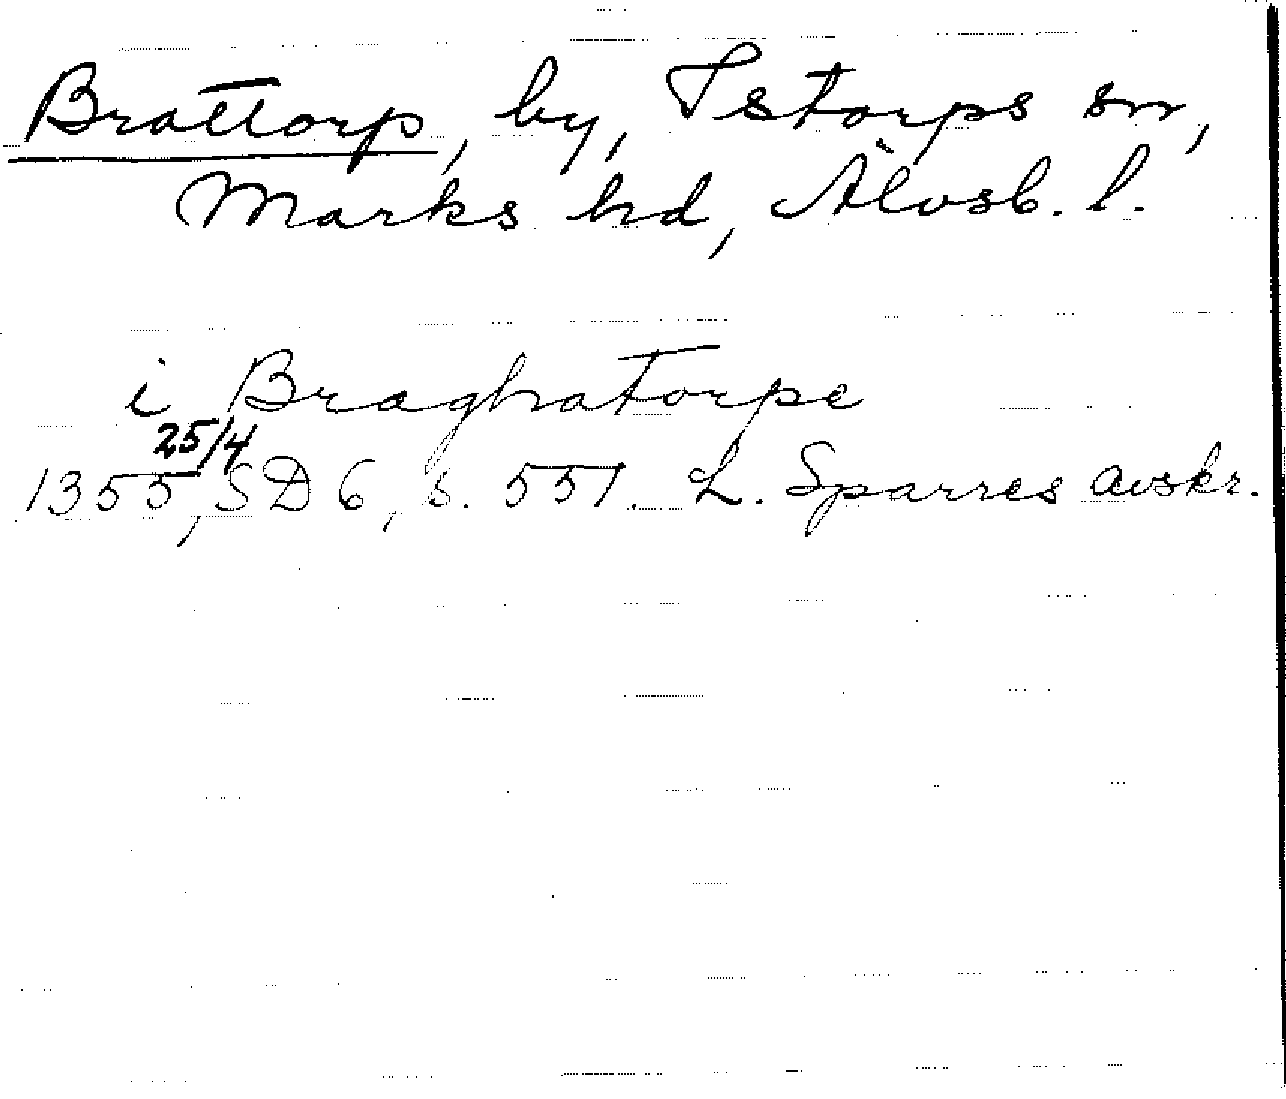 Brattorp, by, Istorps sn,
Marks hd, Älvsb. l.
i Braghatorpe
1355 25/4, SD 6, s. 551. L. Sparres avskr.